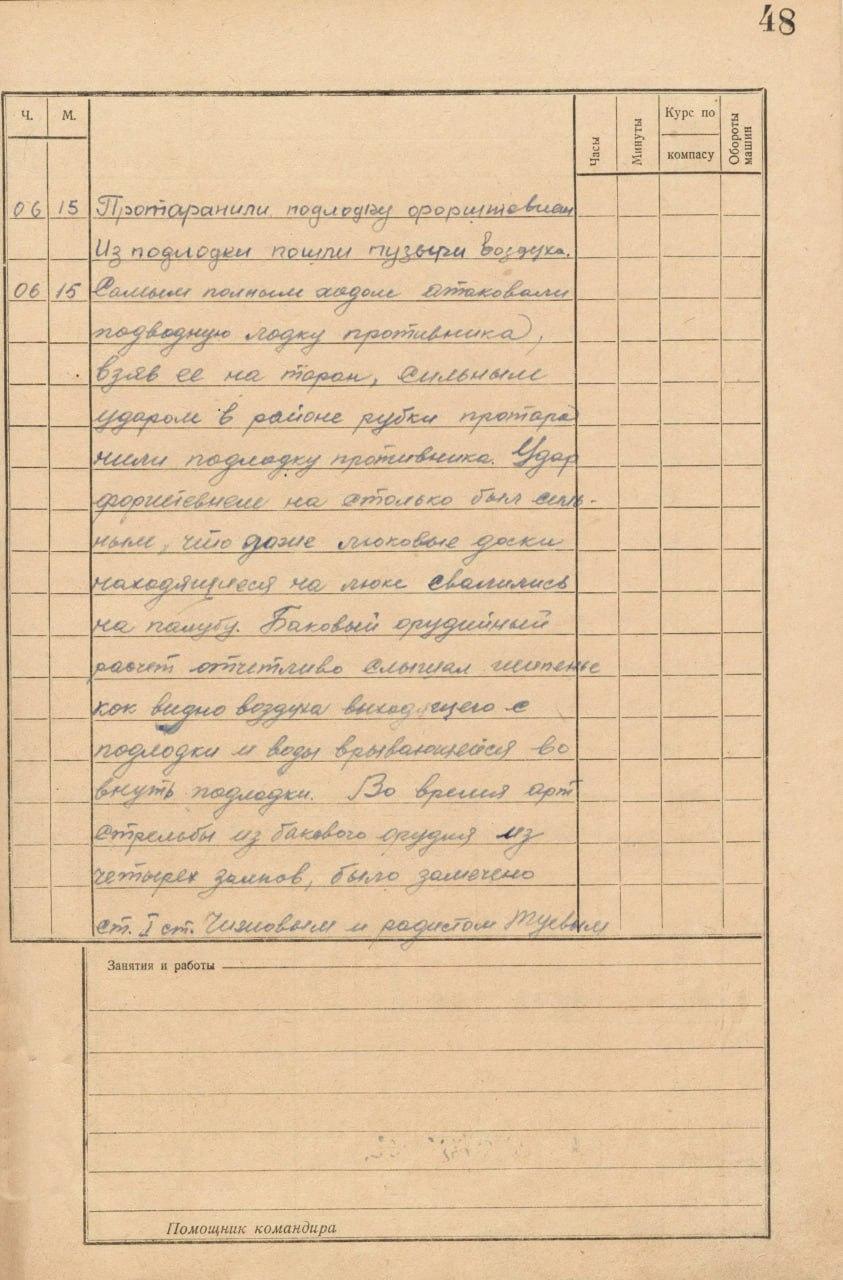 48
Ч. М. Часы Минуты Курс по компасу Обороты машин
06 15 Протаранили подлодку форштевнем
Из подлодки пошли пузыри воздуха.
06 15 Самым полным ходом атаковали
подводную лодку противника,
взяв ее на таран, сильным
ударом в районе рубки протара
нили подлодку противника. Удар
форштевнем на столько был силь-
ным, что даже люковые доски
находящиеся на люке свалились
на палубу. Баковый орудийный
расчет отчетливо слышал шипенье
как видно воздуха выходящего с
подлодки и воды врывающейся во
внутрь подлодки. Во время арт
стрельбы из бакового орудия из
четырех залпов, было замечено
ст. I ст. Чижовым и радистом
Занятия и работы
Помощник командира